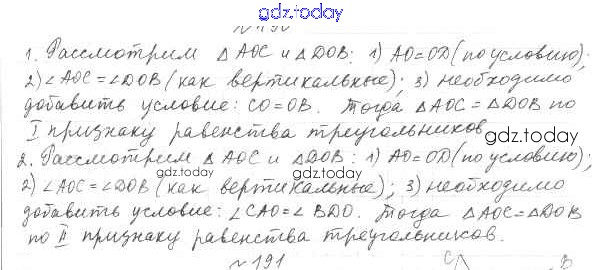 gdz.today
№ 190
1. Рассмотрим △ AOC и △ DOB: 1) AO=OD (по условию);
2) ∠AOC=∠DOB (как вертикальные); 3) необходимо
добавить условие: CO=OB. Тогда △AOC=△DOB по
I признаку равенства треугольников.
gdz.today
2. Рассмотрим △ AOC и △DOB: 1) AO=OD (по условию);
gdz.today gdz.today
2) ∠AOC=∠DOB (как вертикальные); 3) необходимо
добавить условие: ∠CAO=∠BDO. Тогда △AOC=△DOB
по II признаку равенства треугольников.
№191 C B
gdz.today